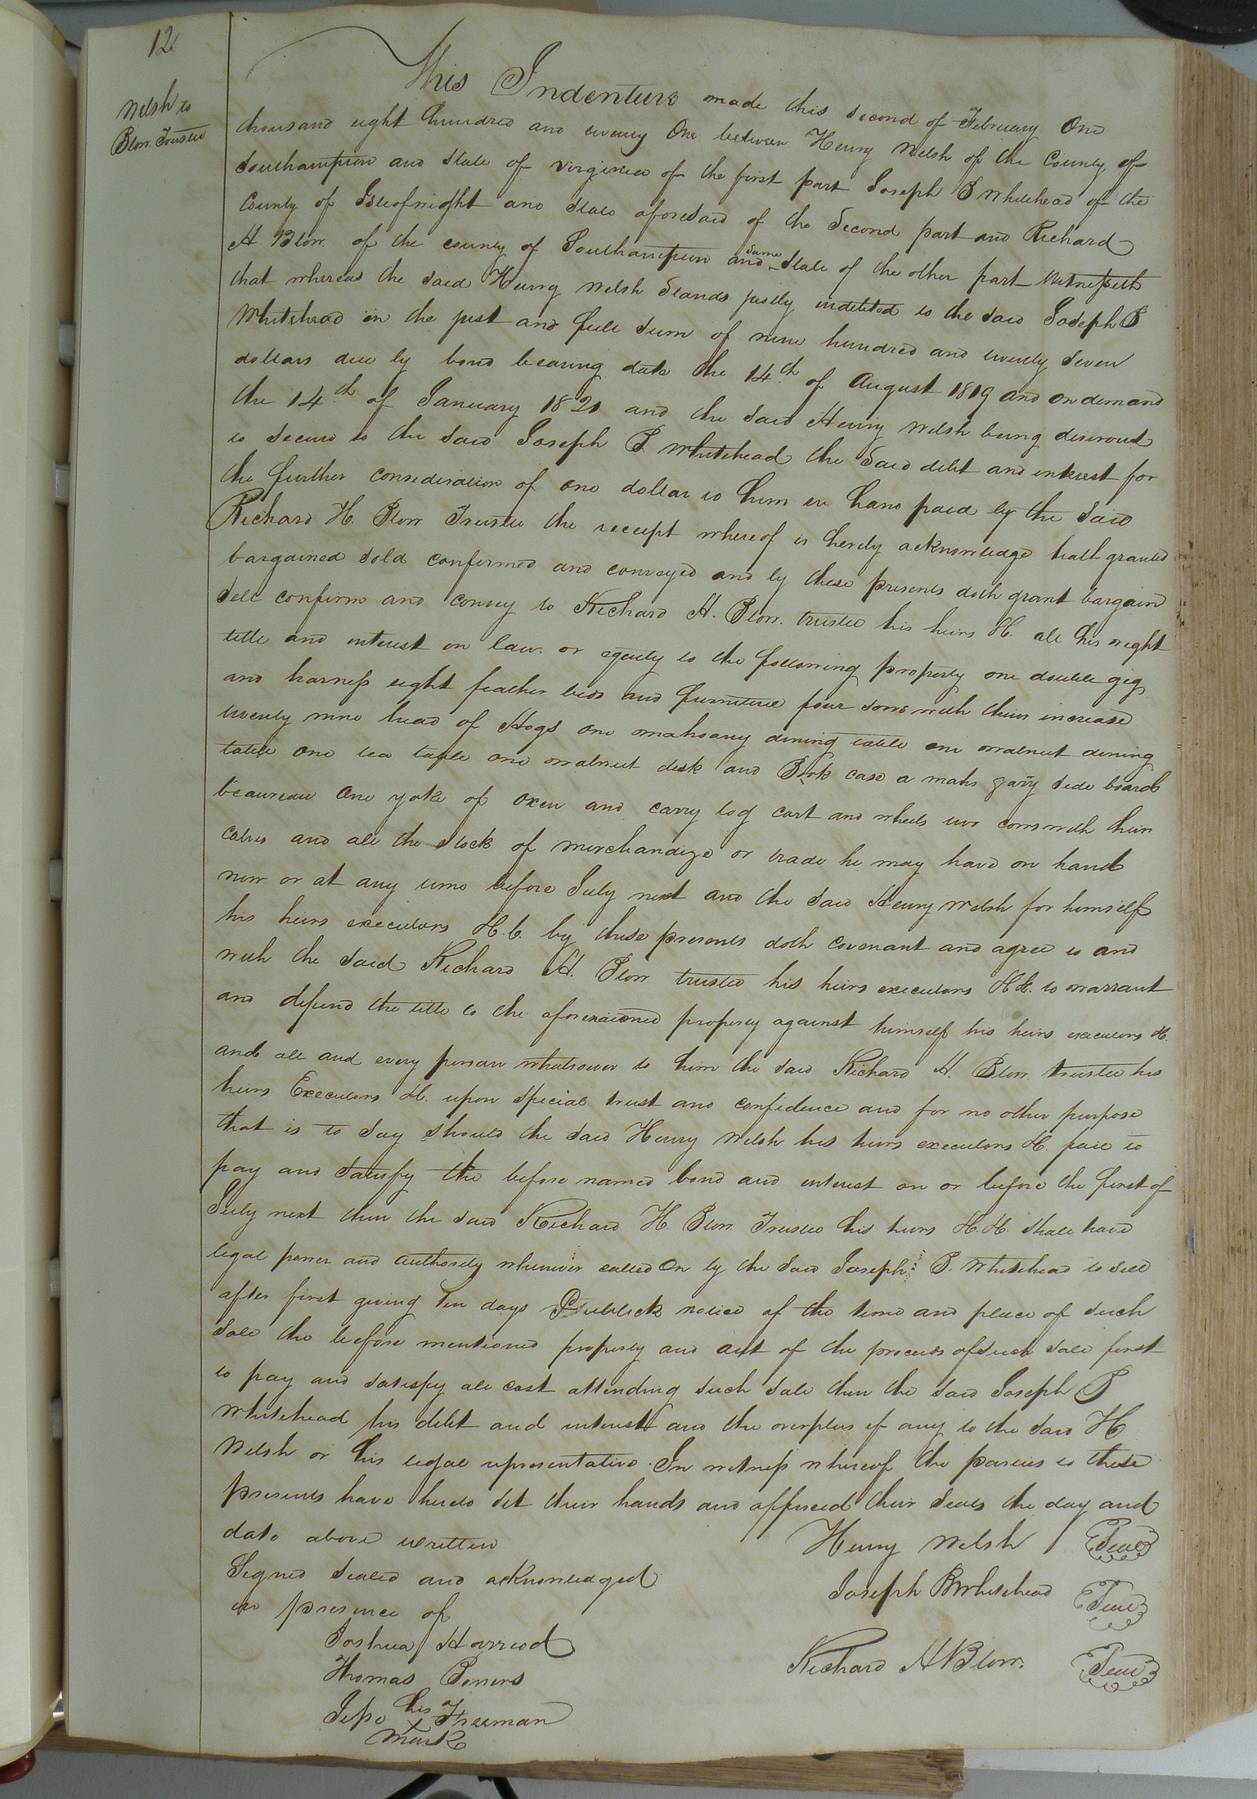 12
Welsh to
Blow Trustee
This Indenture made this second of February One
thousand eight hundred and twenty One between Henry Welsh of the County of
Southampton and State of Virginia of the first part Joseph P Whitehead of the
County of Isleofwight and State aforesaid of the Second part and Richard
H Blow of the county of Southampton and same State of the other part Witnesseth
that whereas the said Henry Welsh Stands justly indebted to the said Joseph P
Whitehead in the just and full sum of nine hundred and twenty Seven
dollars due by bond bearing date the 14th of August 1819 and on demand
the 14th of January 1821 and the said Henry Welsh being desirous
to secure to the said Joseph P. Whitehead the said debt and interest for
the further consideration of one dollar to him in hand paid by the said
Richard H. Blow Trustee the receipt whereof is hereby acknowledge hath granted
bargained sold confirmed and conveyed and by these presents doth grant bargain
sell confirm and convey to Richard H. Blow. trustee his heirs &. all his right
title and interest in law. or equity to the following property one double gig
and harness eight feather beds and furniture four sows with their increase
twenty nine head of Hogs one mahoany dining table one walnut dining
table one tea table one walnut desk and Book case a maho gany side board
beaureau One yoke of oxen and carry log cart and wheels two cows with their
calves and all the stock of merchandize or trade he may have on hand
now or at any time before July next and the said Henry Welsh for himself
his heirs executors &.C. by these presents doth covenant and agree to and
with the said Richard H. Blow trustee his heirs executors &c. to warrant
and defend the title to the aforesaid property against himself his heirs executors &.
and all and every person whatsoever to him the said Richard H. Blow. trustee his
heirs Executors &. upon special trust and confidence and for no other purpose
that is to say should the said Henry Welsh his heirs executors &. fail to
pay and satisfy the before named bond and interest on or before the first of
July next then the said Richard H. Blow. Trustee his heirs &.&. shall have
legal power and authority whenever called On by the said Joseph P. Whitehead to sell
after first giving ten days Publick notice of the time and place of such
sale the before mentioned property and out of the proceeds of such sale first
to pay and satisfy all cost attending such sale then the said Joseph P
Whitehead his debt and interest and the overplus if any to the said H
Welsh or his legal representative. In witness whereof the parties to these
presents have hereto set their hands and affixed their seals the day and
date above written
Henry Welsh Seal
Signed sealed and acknowledged
Joseph P Whitehead Seal
in presence of
Joshua Harriod
Richard H Blow. Seal
Thomas Powers
his
Jesse X Freeman
mark